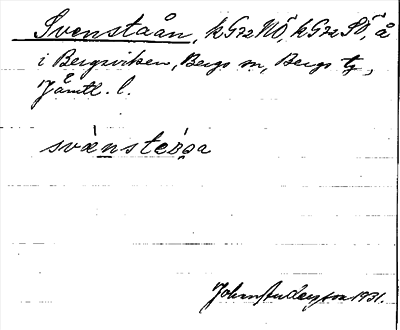 Svenstaån, kG72NÖ, kG72SÖ, å
i Bergsviken, Bergs sn, Bergs tg,
Jämtl. l.
svänstę́ra
John Andersson 1931.